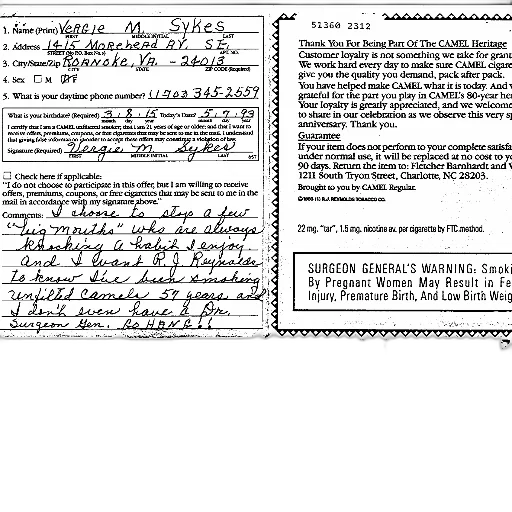 1. Name (Print) VERGIE M. SYKES
FIRST MIDDLE INITIAL LAST
2. Address 1415 MOREHEAD AV. S.E.
STREET (No P.O. Box No.s) APT. NO.
3. City/State/Zip ROANOKE, VA. - 24013
CITY STATE ZIP CODE (Required)
4. Sex ☐ M ☑ F
5. What is your daytime phone number? (703) 345-2559
What is your birthdate? (Required) 3/8/15 Today's Date? 5/7/93
month day year month day year
I certify that I am a CAMEL unfiltered smoker; that I am 21 years of age or older; and that I want to
receive offers, premiums, coupons, or free cigarettes that may be sent to me in the mail. I understand
that giving false information in order to accept these offers may constitute a violation of law.
Signature (Required) Vergie M. Sykes
FIRST MIDDLE INITIAL LAST 057
☐ Check here if applicable:
"I do not choose to participate in this offer, but I am willing to receive
offers, premiums, coupons, or free cigarettes that may be sent to me in the
mail in accordance with my signature above."
Comments: I choose to stop a few
"big mouths" who are always
knocking a habit I enjoy
and I want R.J. Reynolds
to know I've been smoking
unfilted Camels 57 years and
I don't even have a Dr.
Surgeon Gen. GO HANG!!
51360 2312
Thank You For Being Part Of The CAMEL Heritage
Customer loyalty is not something we take for gran
We work hard every day to make sure CAMEL cigare
give you the quality you demand, pack after pack.
You have helped make CAMEL what it is today. And
grateful for the part you play in CAMEL's 80-year he
Your loyalty is greatly appreciated, and we welcome
to share in our celebration as we observe this very sp
anniversary. Thank you.
Guarantee
If your item does not perform to your complete satisfa
under normal use, it will be replaced at no cost to yo
90 days. Return the item to: Fletcher Barnhardt and
1211 South Tryon Street, Charlotte, NC 28203.
Brought to you by CAMEL Regular.
©1993 R.J. REYNOLDS TOBACCO CO.
22 mg. "tar", 1.5 mg. nicotine av. per cigarette by FTC method.
SURGEON GENERAL'S WARNING: Smoki
By Pregnant Women May Result in Fe
Injury, Premature Birth, And Low Birth Weig